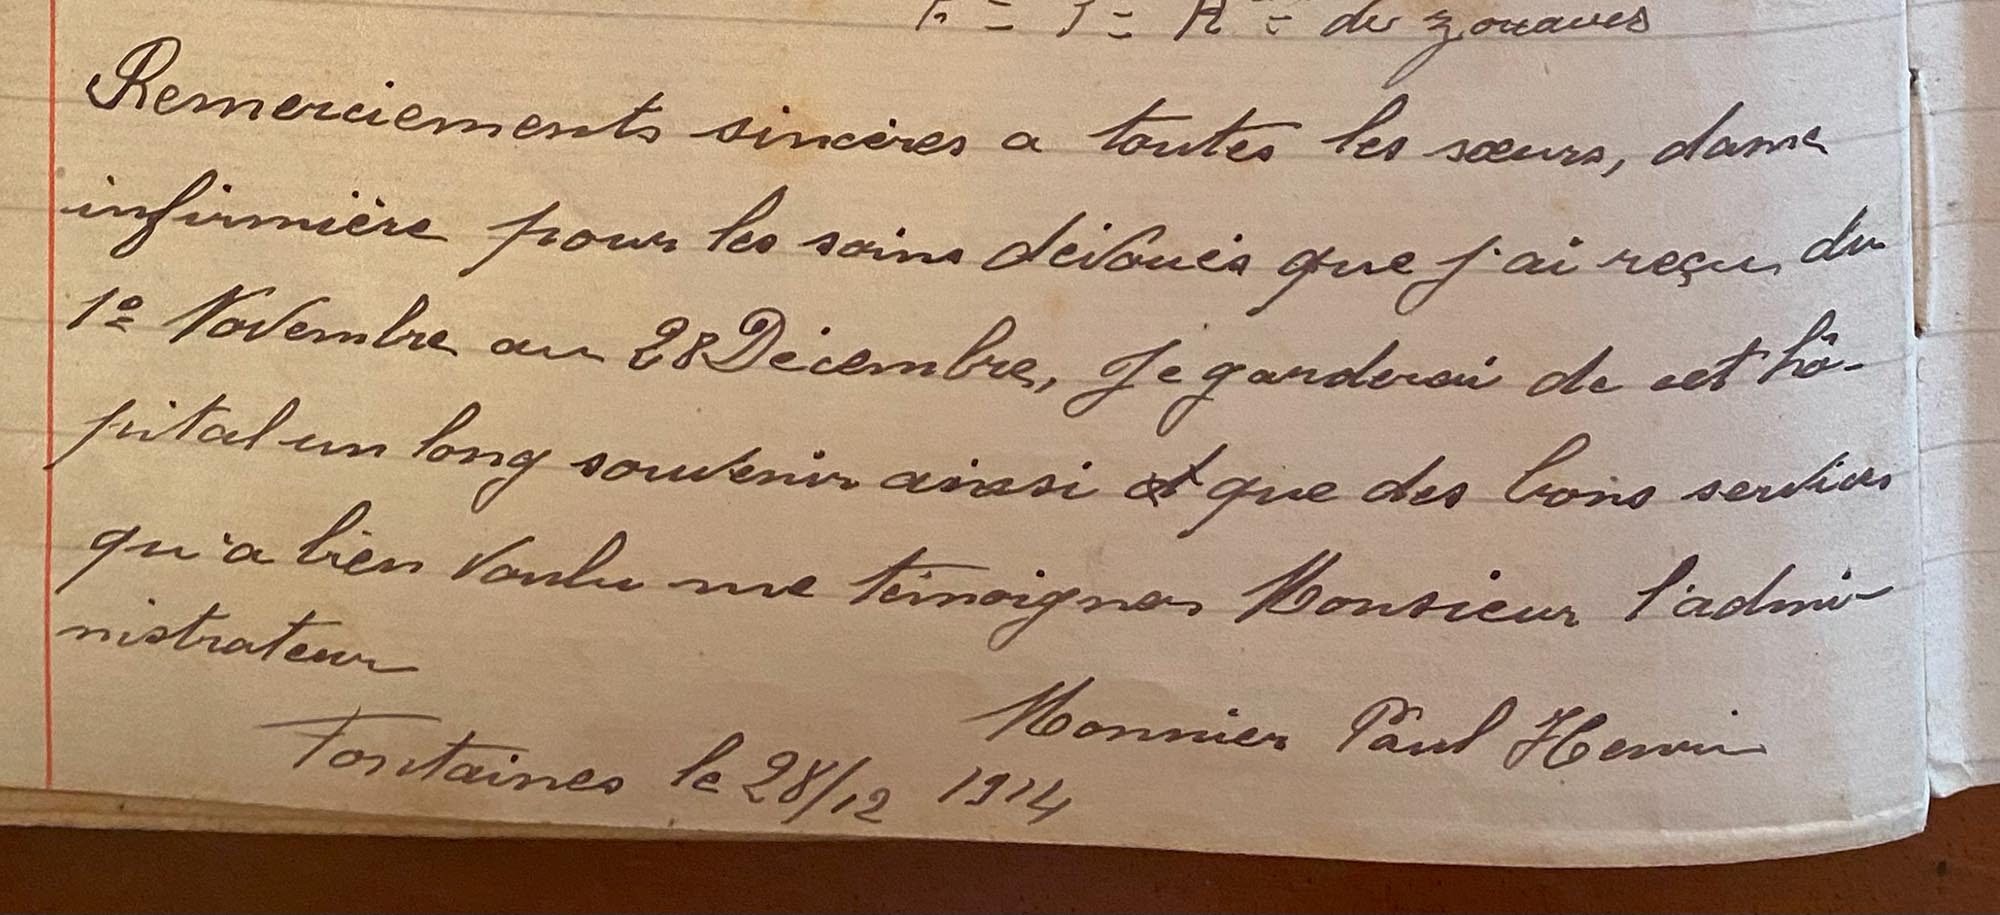 de zouaves
Remerciements sincères a toutes les sœurs, dame
infirmière pour les soins dévoués que j'ai reçu du
1º Novembre au 28 Décembre, Je garderai de cet hô-
pital un long souvenir ainsi que des bons services
qu'a bien voulu me témoigner Monsieur l'admi-
nistrateur
Monnier Paul Henri
Fontaines le 28/12 1914